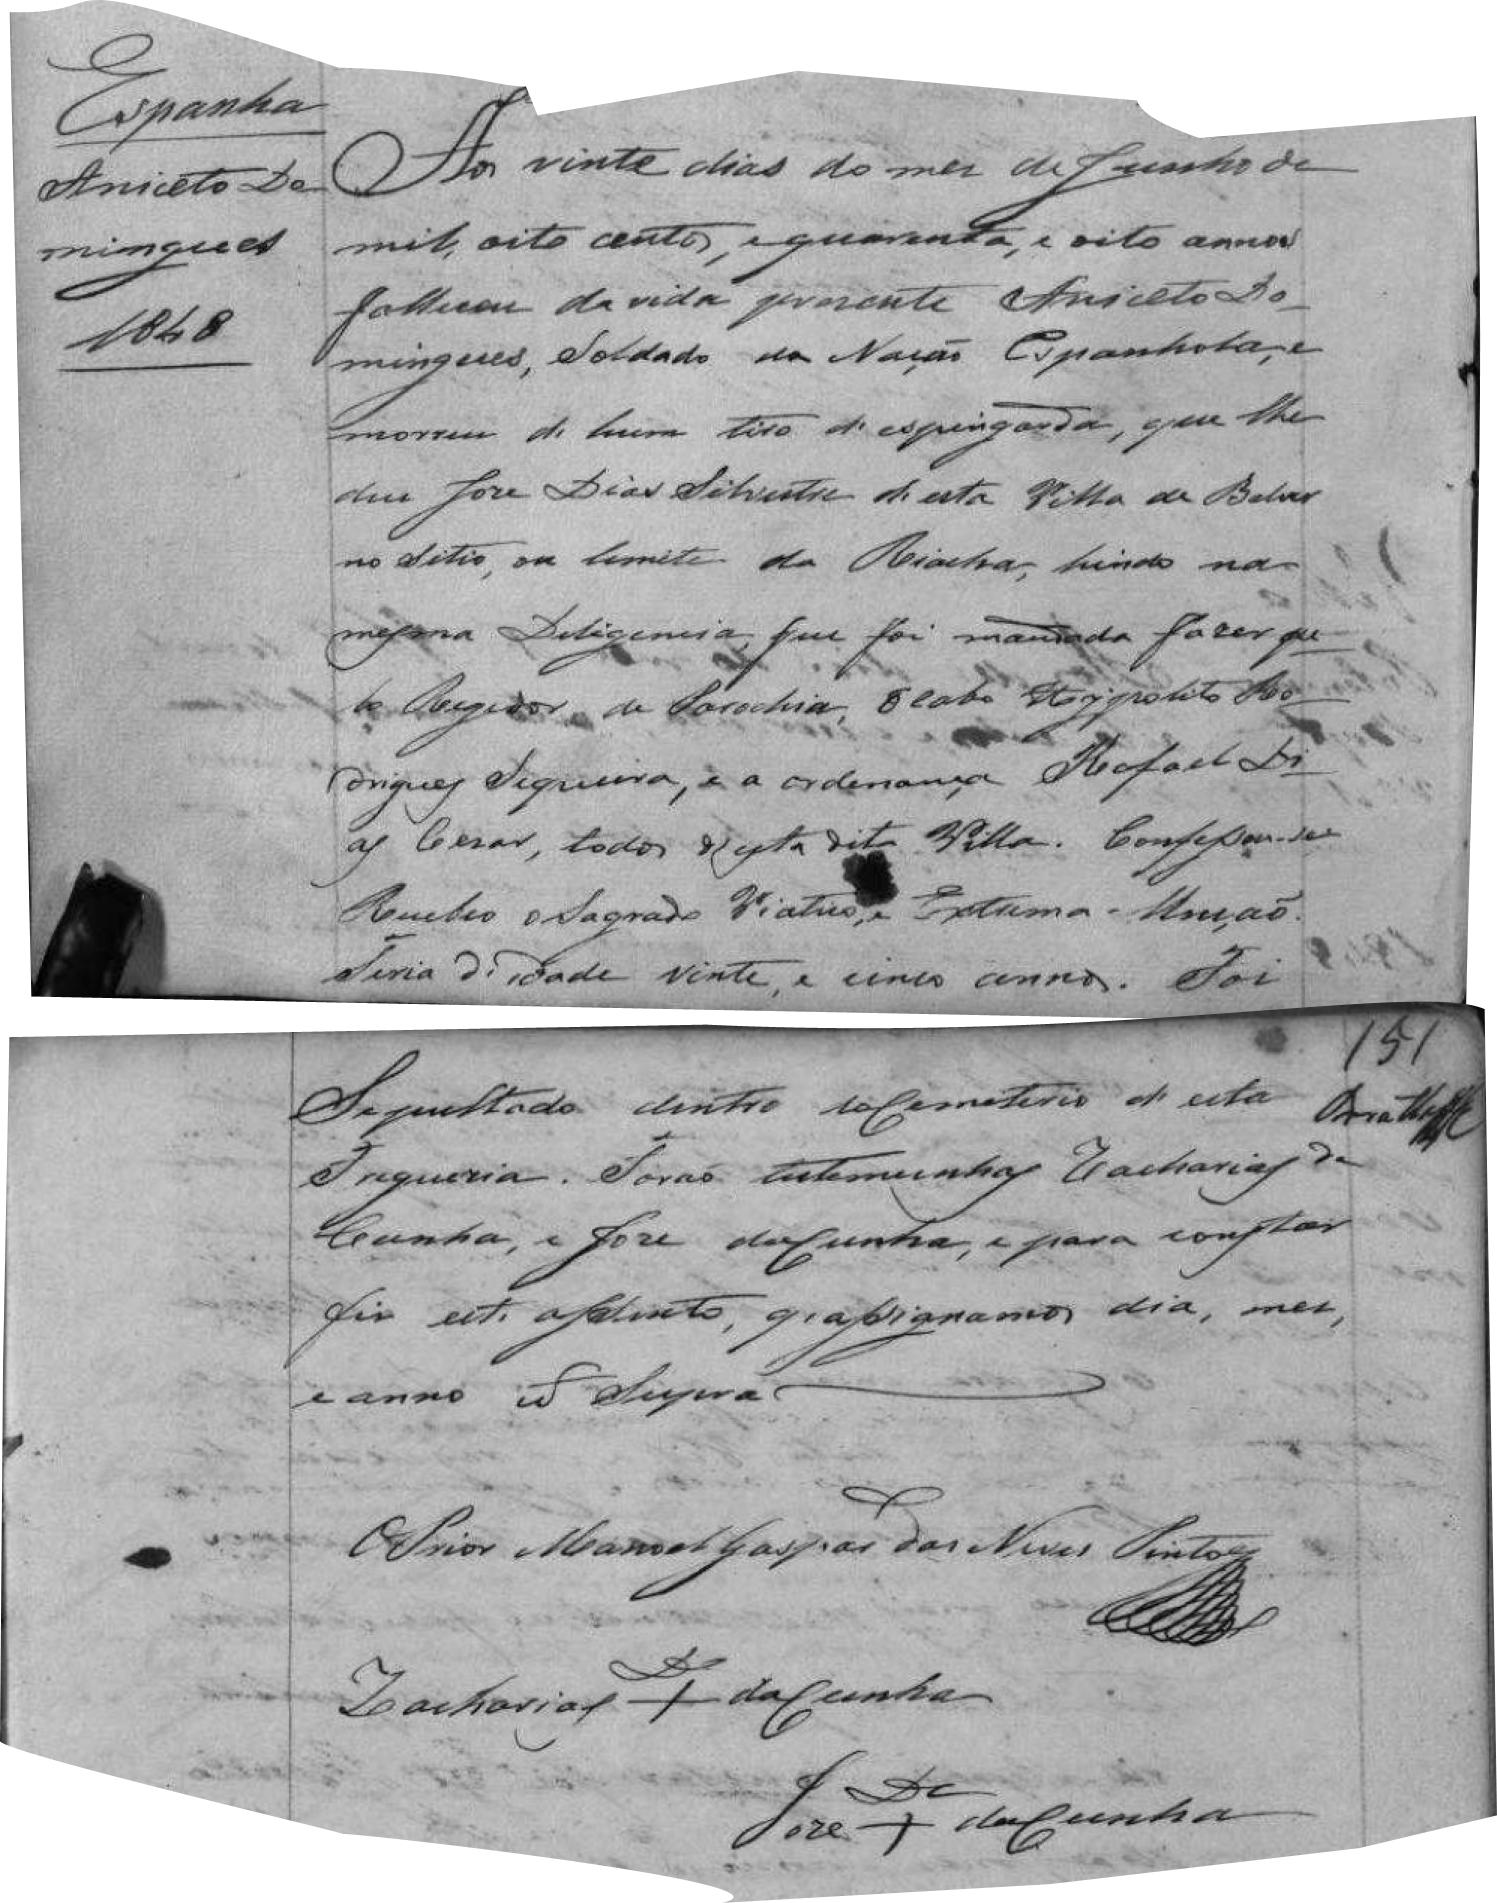 Espanha
Aniceto Do
mingues
1848
Aos vinte dias do mez de Junho de
mil, oito centos, e quarenta, e oito annos
falleceu da vida prezente Aniceto Do-
mingues, Soldado da Nação Espanhola, e
morreu de hum tiro de espingarda, que lhe
deu Joze Dias Silvestre de esta Villa de Belver
no Sitio, ou lemite da Riacha, hindo na
mesma Deligencia, que foi mandada fazer pe-
lo Regedor de Parochia, o Cabo Hyppolito Ro-
drigues Siqueira, e a ordenança Rafael Di-
as Cezar, todos desta dita Villa. Confessou-se
Recebeo o Sagrado Viatico, e Extrema-Unção.
Teria de idade vinte, e cinco annos. Foi
151
Sepultado dentro do Cemeterio de esta
Freguezia. Forão testemunhas Zacharias da
Cunha, e Joze da Cunha, e para constar
fiz este assento, q. assignamos dia, mez,
e anno ut Supra
O Prior Manoel Gaspar das Neves Pinto
Zacharias De + da Cunha
Joze De + da Cunha